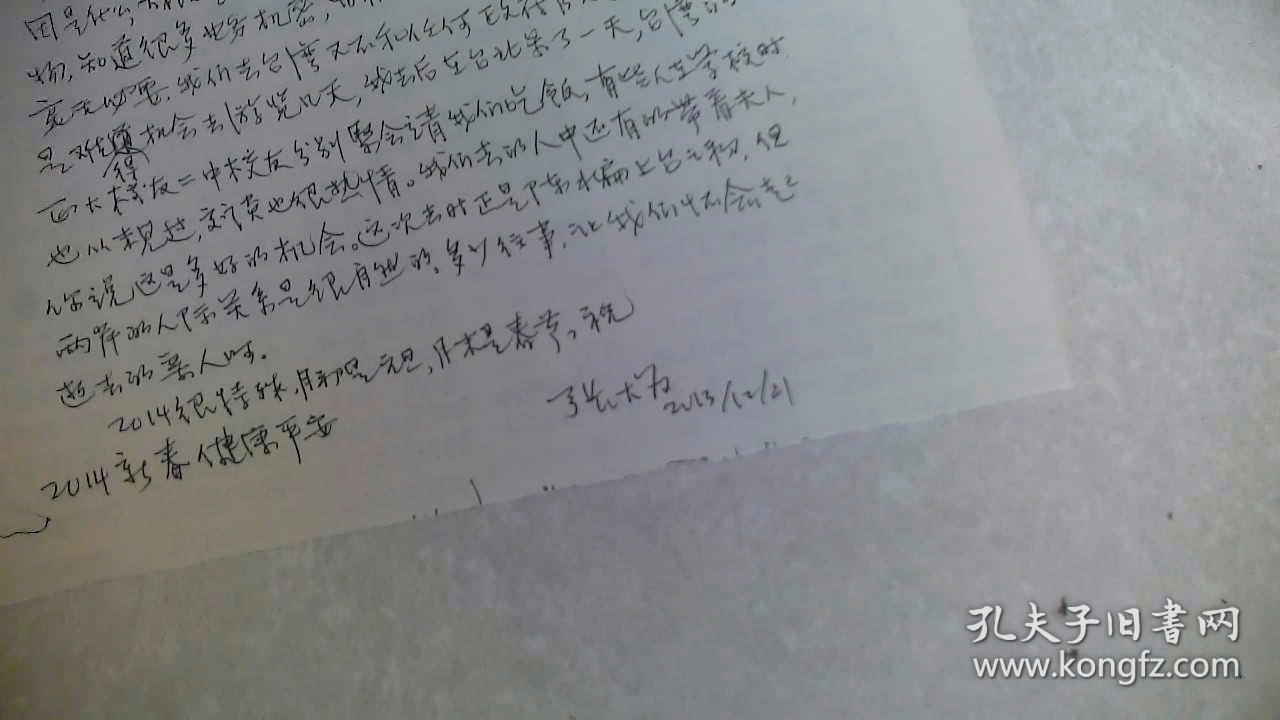 因是什么
物,知道很多业务机密,
竟无必要。我们去台湾又不和任何政府
是难得机会去游览几天,我去后在台北呆了一天,台湾
西大校友二中校友分别聚会请我们吃饭,有些人在学校时
也从未见过,交谈也很热情。我们去的人中还有的带着夫人,
你说这是多好的机会。这次去时正是陈水扁上台之初,但
两岸的人际关系是很自然的。多少往事,让我们怀念起
逝去的亲人时。
2014很特殊,月初是元旦,月末是春节。祝
2014新春健康平安
张大为
2013/12/21
孔夫子旧书网
www.kongfz.com